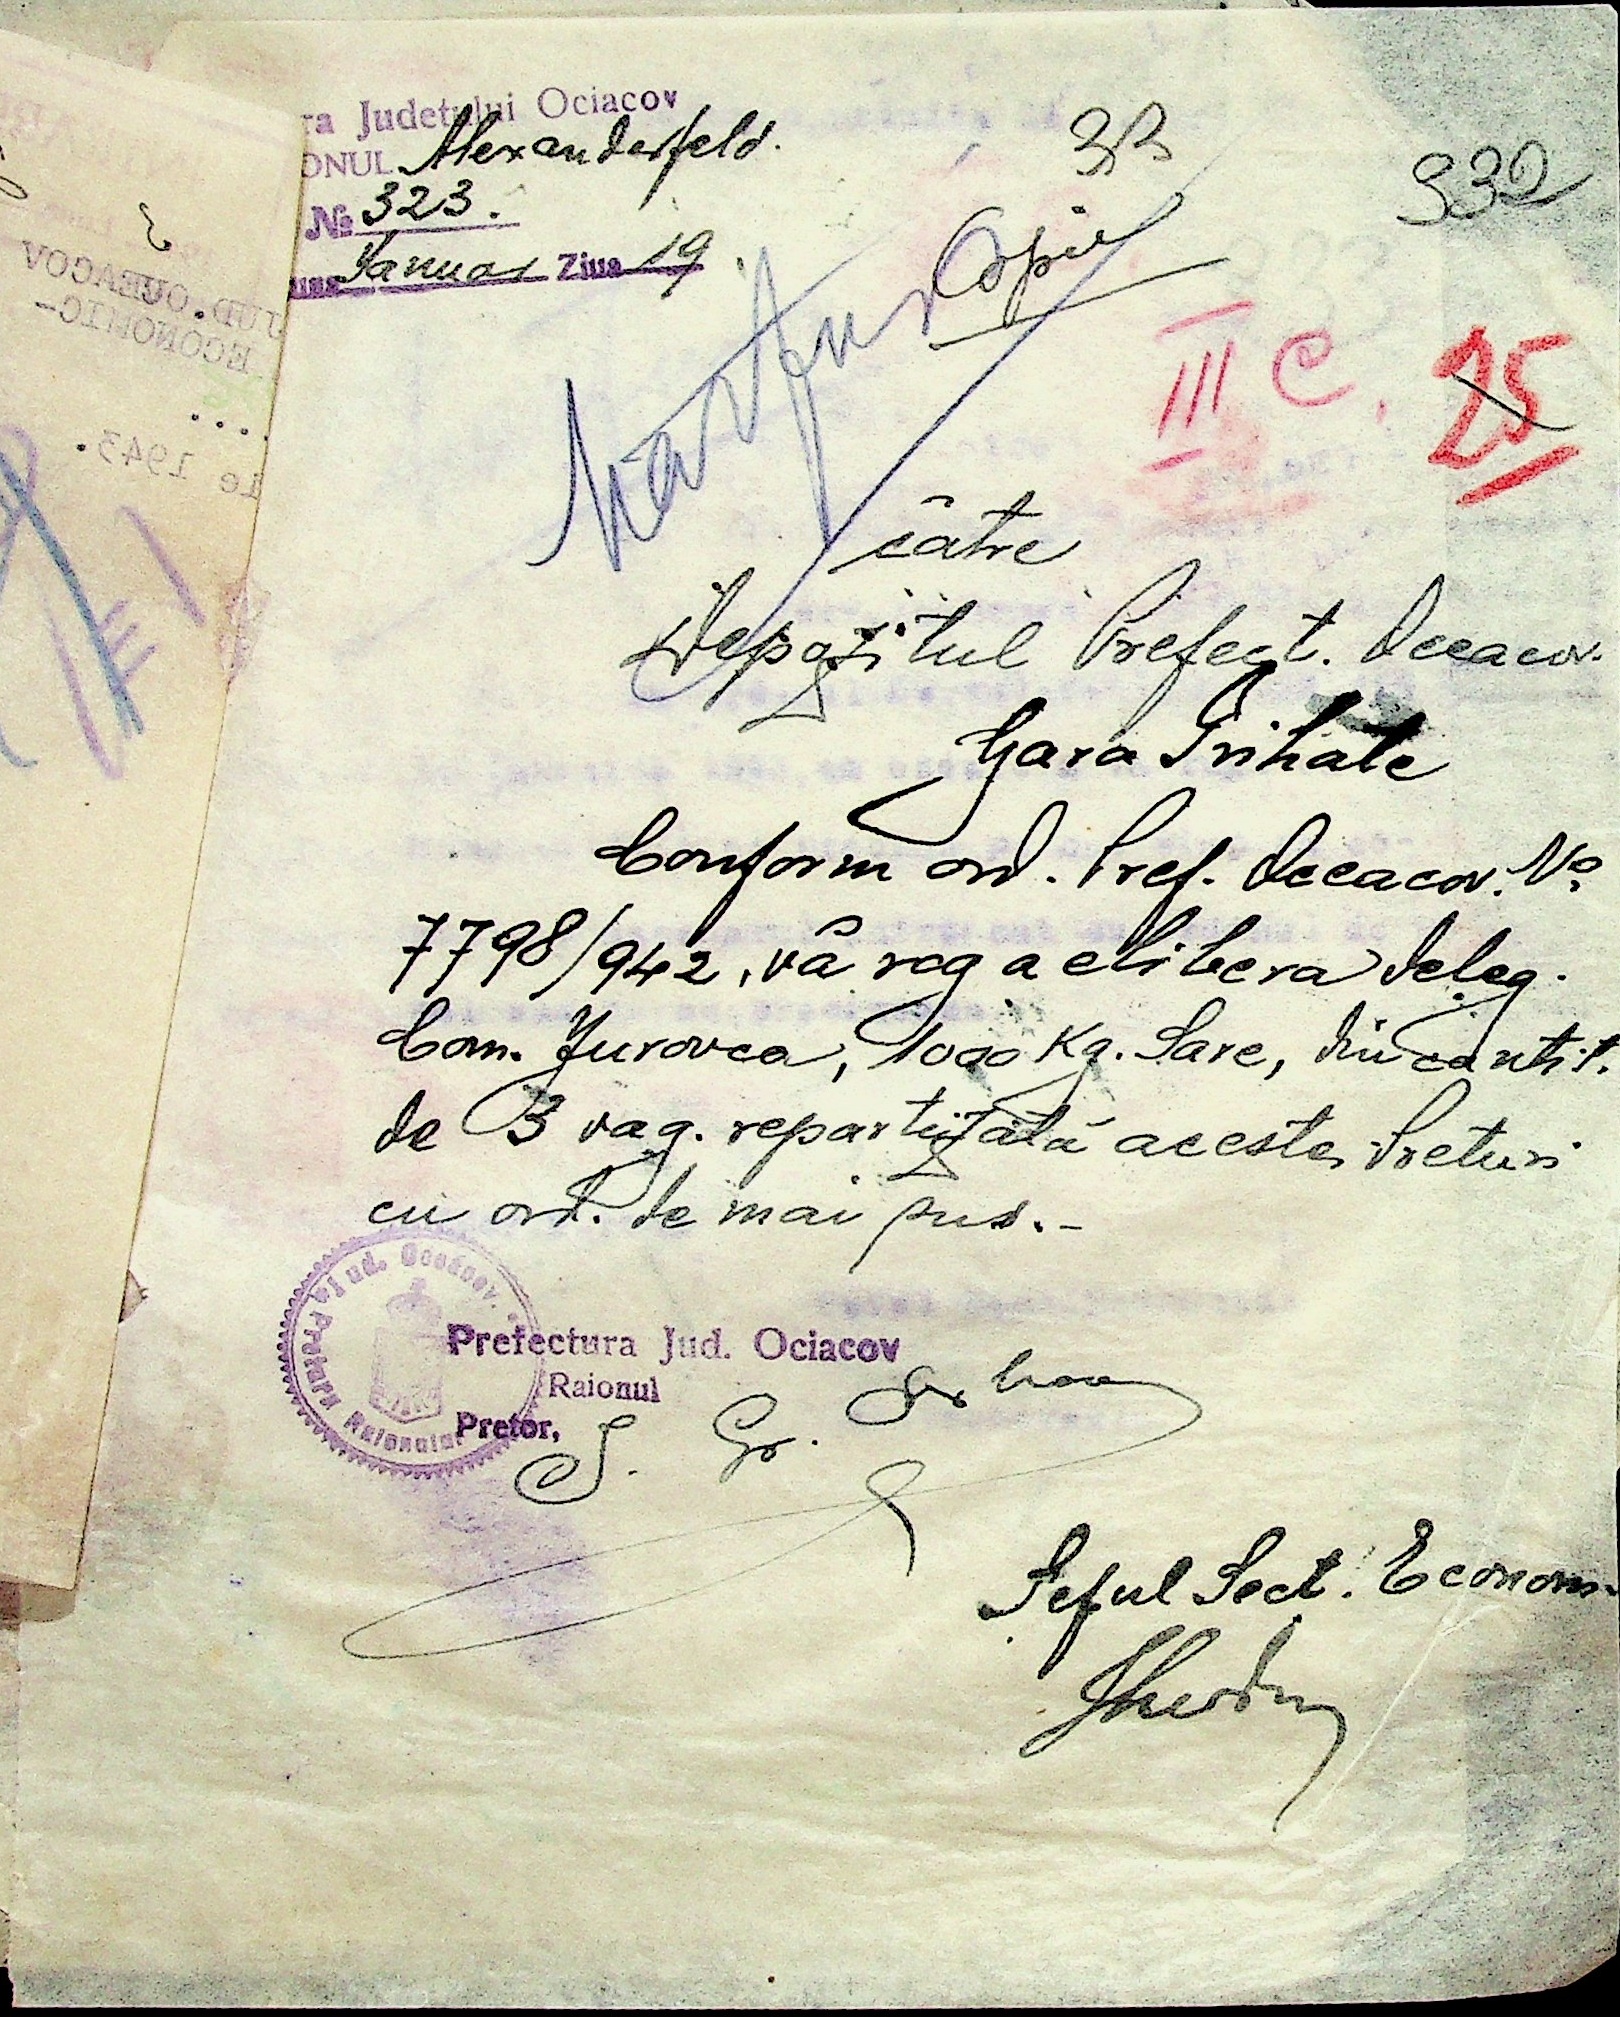 ra Judetului Ociacov
ONUL Alexanderfeld.
№ 323.
Januar Ziua 19
33
332
Copie
III C. 25
către
Depozitul Prefect. Oceacov.
Gara Trihate
Conform ord. Pref. Oceacov. No
7798/942, vă rog a elibera deleg.
Com. Jurovca, 1000 Kg. Sare, din cantit.
de 3 vag. repartizată acestei Preturi
cu ord. de mai sus.-
Pretura Raionului jud. Oceacov.
Prefectura Jud. Ociacov
Raionul
Pretor,
Gr.
Seful Sect. Econom.
JUD. OCEACOV
ECONOMIC-
....
1943.